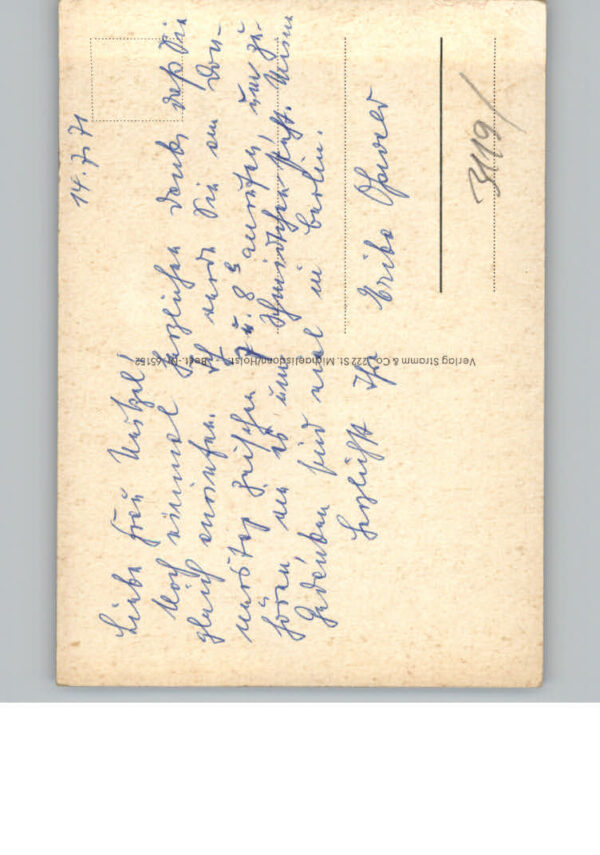 14.7.71
Liebe Frau
Noch einmal herzlichen Dank, daß Sie
gleich anriefen. Ich werde Sie am Don-
nerstag zwischen 7 u. 8 h anrufen, um zu
hören, wie es um steht. Meine
Gedanken sind viel in Berlin.
Herzlichst Ihre Erika
Verlag Stromm & Co., 222 St. Michaelisdonn/Holst. - Best.-Nr. 65152
3119/